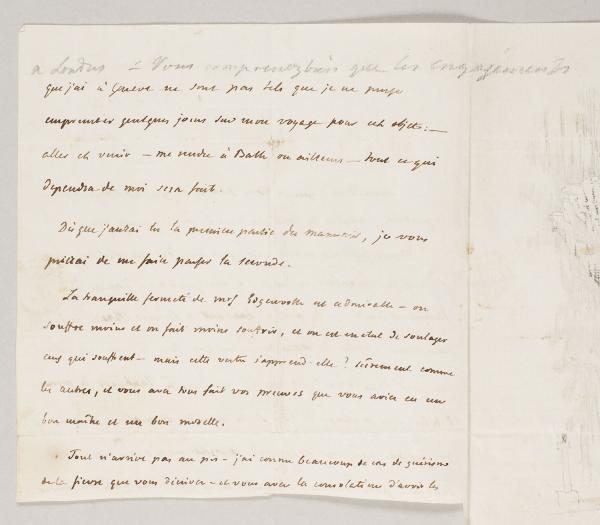 a Londres – Vous comprenez bien que les engagements
que j'ai à Genève ne sont pas tels que je ne puisse
emprunter quelques jours sur mon voyage pour cet objet. —
aller et venir — me rendre à Bath ou ailleurs — tout ce qui
dependra de moi sera fait.
Dès que j'aurai lu la première partie du manuscrit, je vous
prierai de me faire passer la seconde.
La tranquille fermeté de mrs Edgeworth est admirable – on
souffre moins et on fait moins souffrir, et on est en etat de soulager
ceux qui souffrent – mais cette vertu s'apprend-elle? surement comme
les autres, et vous avez tous fait vos preuves que vous aviez eu un
bon maître et un bon modelle.
Tout n'arrive pas au pis – j'ai connu beaucoup de cas de guérison
de la fievre que vous – et vous avez la consolation d'avoir les